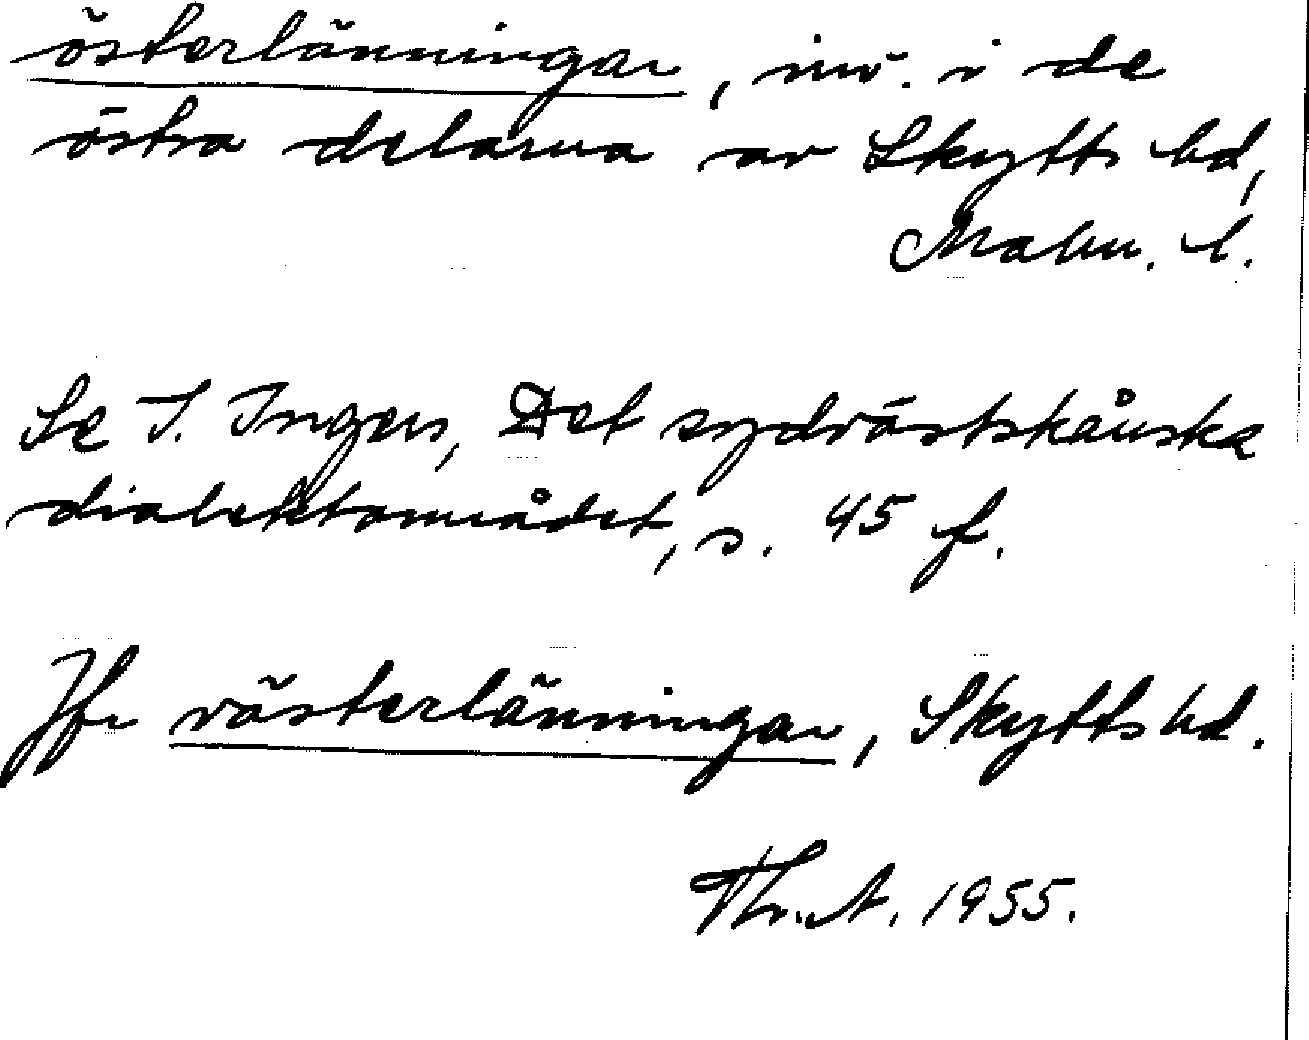 österlänningar, inv. i de
östra delarna av Skytts hd,
Malm. l.
Se I. Ingers, Det sydvästskånska
dialektområdet, s. 45 f.
Jfr västerlänningar, Skytts hd.
Th. A. 1955.